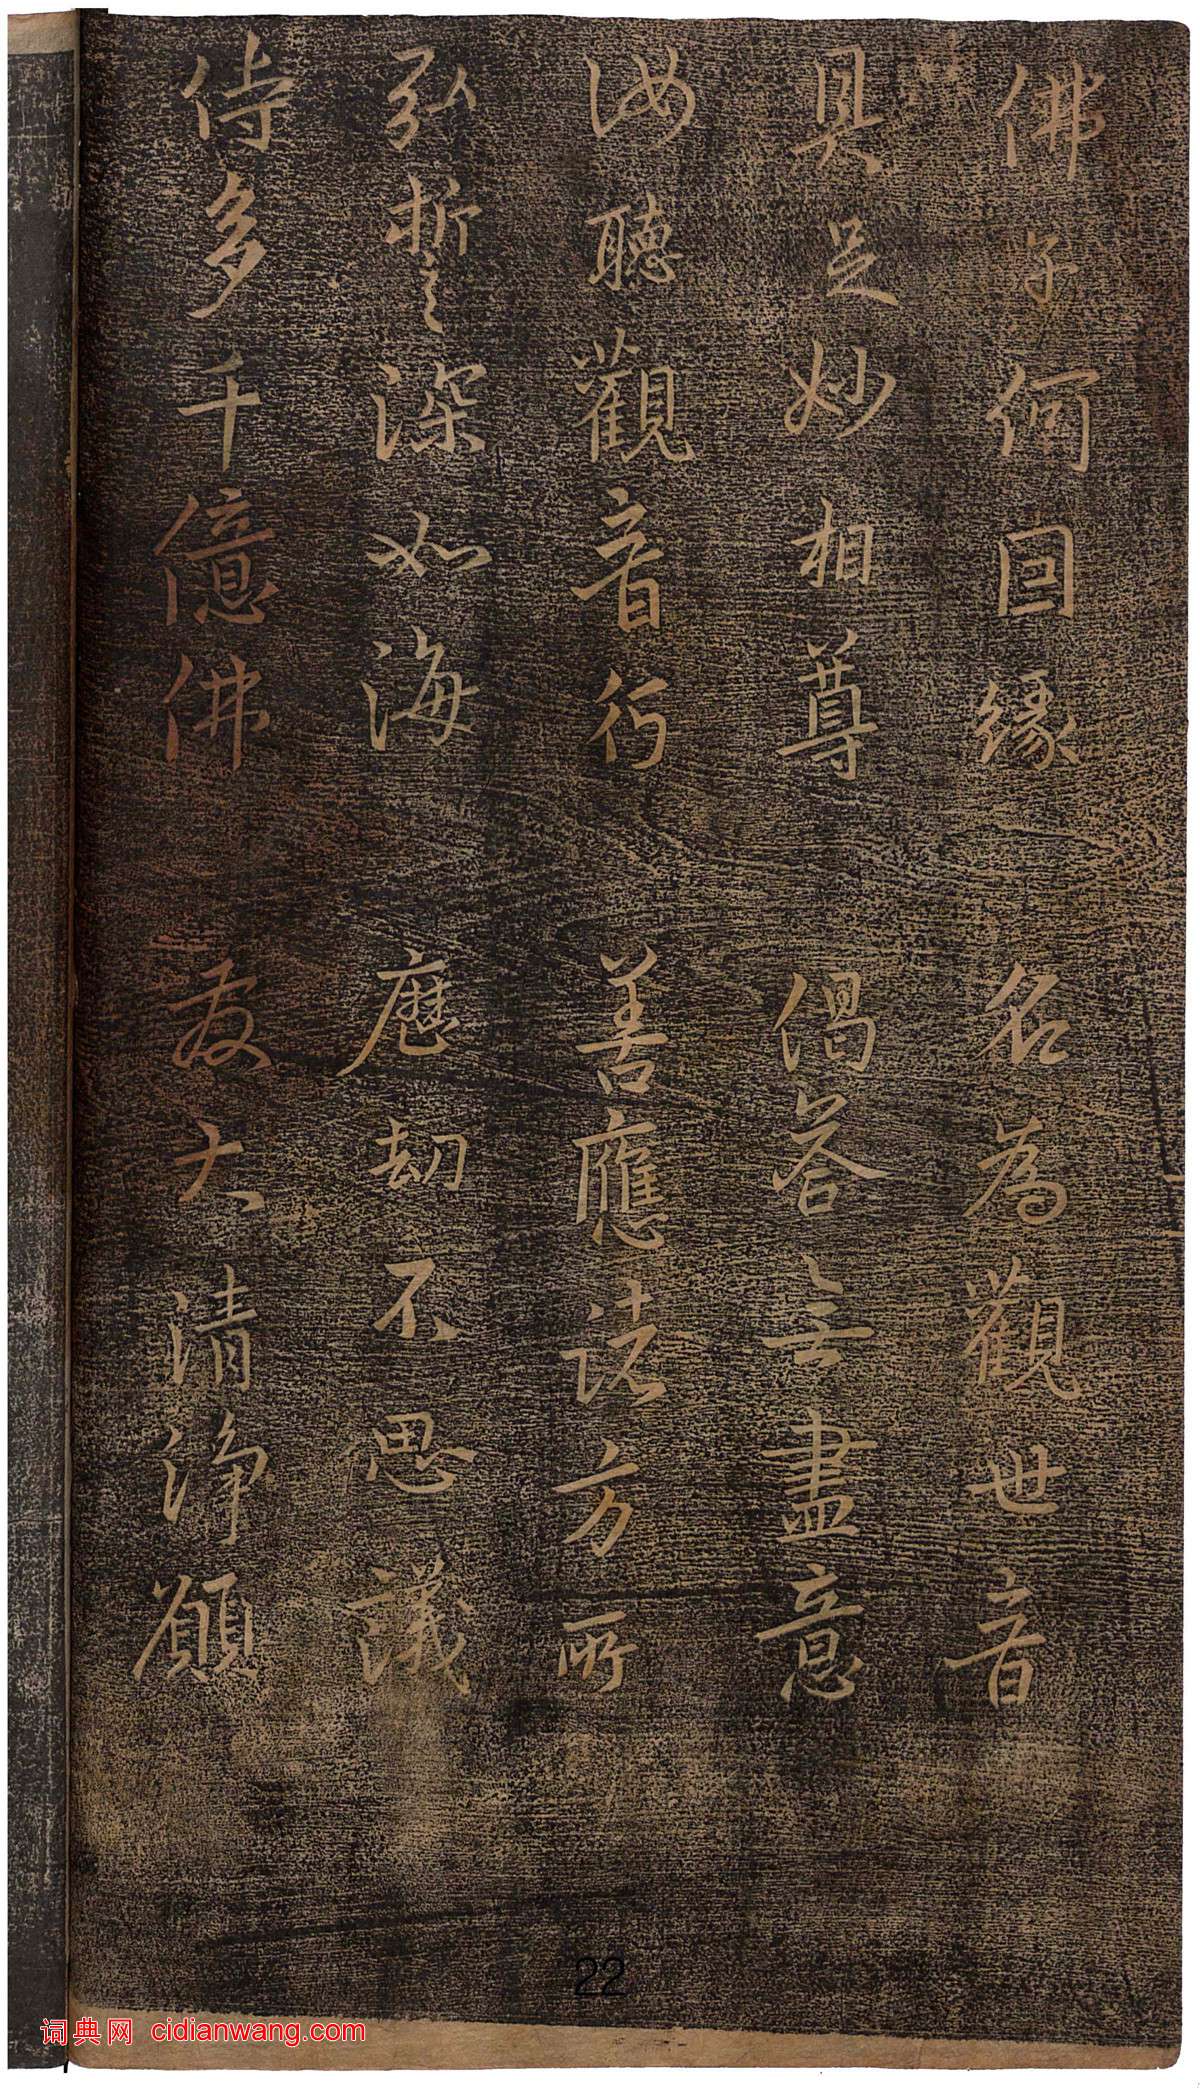 佛子何因緣　名為觀世音
具足妙相尊　偈答無盡意
汝聽觀音行　善應諸方所
弘誓深如海　歷劫不思議
侍多千億佛　發大清淨願
22
词典网 cidianwang.com